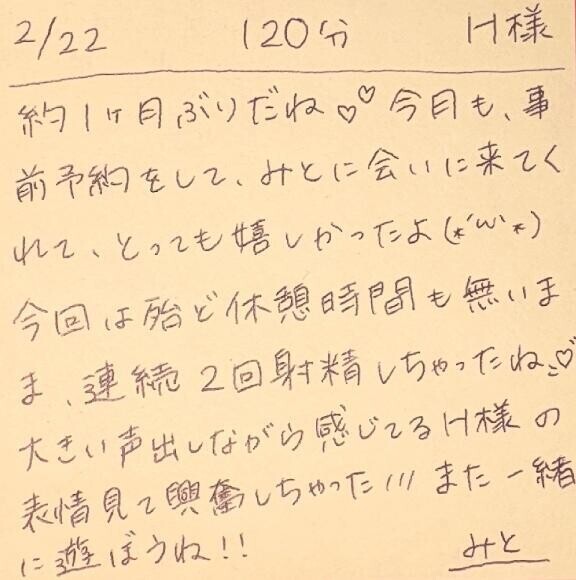 2/22 120分 H様
約1ヶ月ぶりだね♡♡ 今月も、事
前予約をして、みとに会いに来てく
れて、とっても嬉しかったよ(*´ω`*)
今回は殆ど休憩時間も無いま
ま、連続2回射精しちゃったね♡
大きい声出しながら感じてるH様の
表情見て興奮しちゃった/// また一緒
に遊ぼうね!!
みと